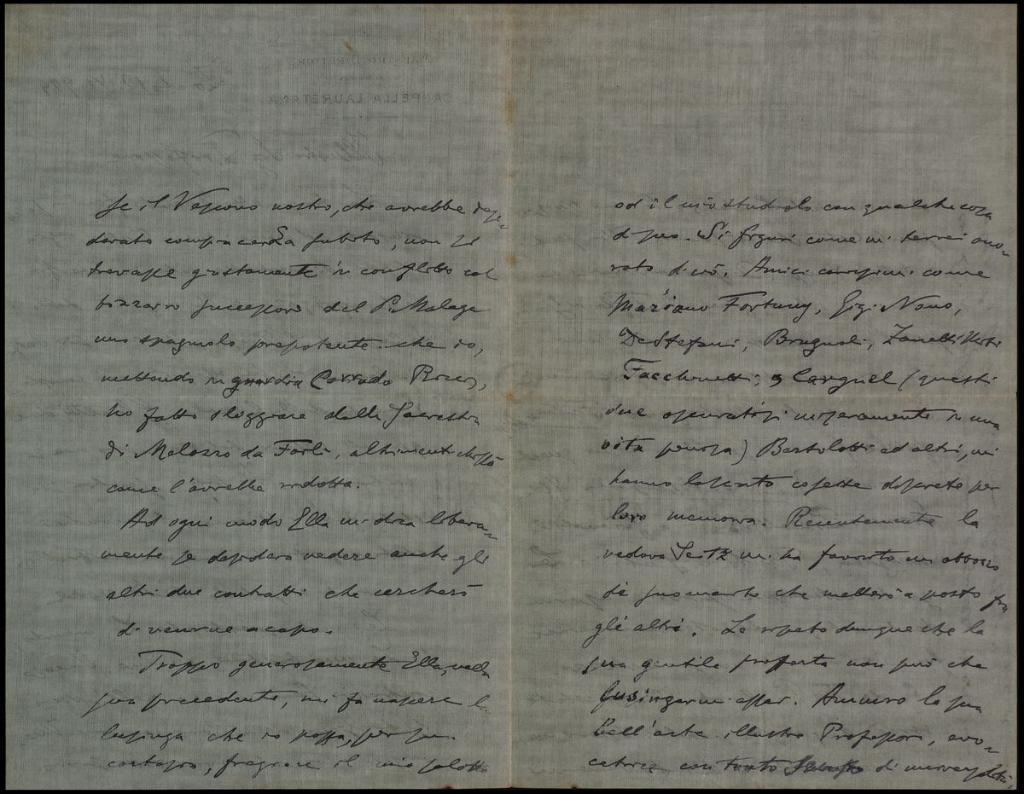 se il Vescovo nostro, che avrebbe desi-
derato compiacerLa subito, non si
trovasse giustamente in conflitto col
bizzarro successore del P. Malaga
uno spagnolo prepotente che io,
mettendo in guardia Corrado Ricci,
ho fatto sloggiare dalla Sacrestia
di Melozzo da Forlì, altrimenti chissà
come l'avrebbe ridotta.
Ad ogni modo Ella mi dica libera-
mente se desidera vedere anche gli
altri due contratti che cercherò
di venirne a capo.
Troppo generosamente Ella, nella
sua precedente, mi fa nascere la
lusinga che io possa, per sua
cortesia, fregiare il mio salotto
od il mio studiolo con qualche cosa
di suo. Si figuri come mi terrei ono-
rato di ciò. Amici carissimi come
Mariano Fortuny, Gigi Nono,
DeStefani, Brugnoli, Zanetti
Facchinetti, Carguel (questi
due miseramente in una
vita penosa) Bertolotti ed altri, mi
hanno lasciato cosette discrete per
loro memoria. Recentemente la
vedova Seitz mi ha favorito un abbozzo
di suo marito che metterò a posto fra
gli altri. Le ripeto dunque che la
sua gentile profferta non può che
lusingarmi assai. Ammiro la sua
bell'arte illustre Professore, evo-
catrice con tanto di meravigliosi